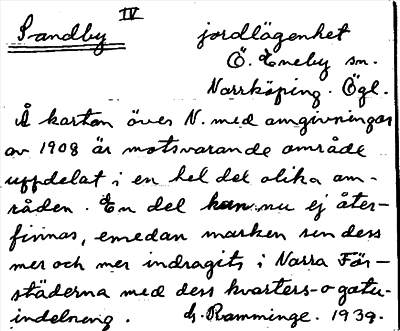 Sandby IV jordlägenhet
Ö. Eneby sn.
Norrköping. Ögl.
Å kartan över N. med omgivningar
av 1908 är motsvarande område
uppdelat i en hel del olika om-
råden. En del kan nu ej åter-
finnas, emedan marken sen dess
mer och mer indragits i Norra För-
städerna med dess kvarters- o gatu-
indelning. G. Ramminge. 1939.